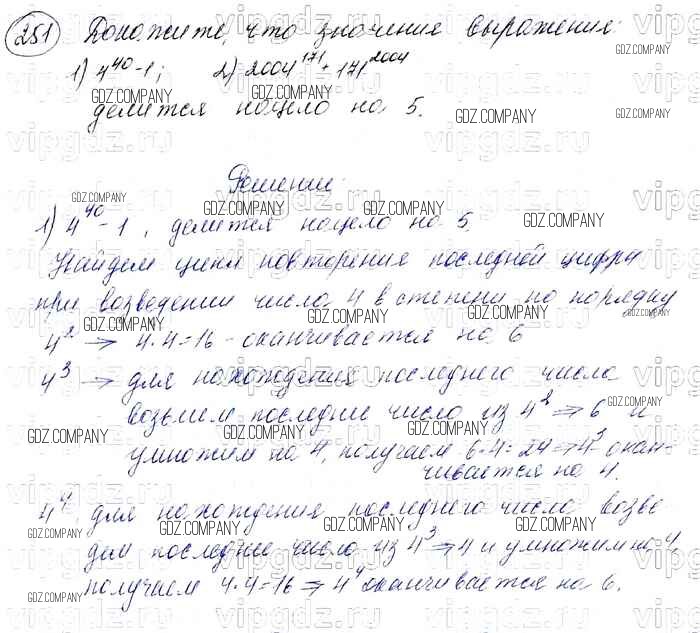 251 Докажите, что значения выражения:
1) 4^40 - 1; 2) 2004^171 + 171^2004
делится нацело на 5.
Решение:
1) 4^40 - 1, делится нацело на 5
Найдем цикл повторения последней цифры
при возведении числа 4 в степени по порядку
4^2 → 4·4=16 - оканчивается на 6
4^3 → для нахождения последнего числа
возьмем последнее число из 4^2 ⇒ 6 и
умножим на 4, получаем 6·4=24 ⇒ 4^3 окан-
чивается на 4.
4^4 для нахождения последнего число возве
дем последнее число из 4^3 ⇒ 4 и умножим на 4
получаем 4·4=16 ⇒ 4^4 оканчивается на 6.
GDZ.COMPANY
vipgdz.ru